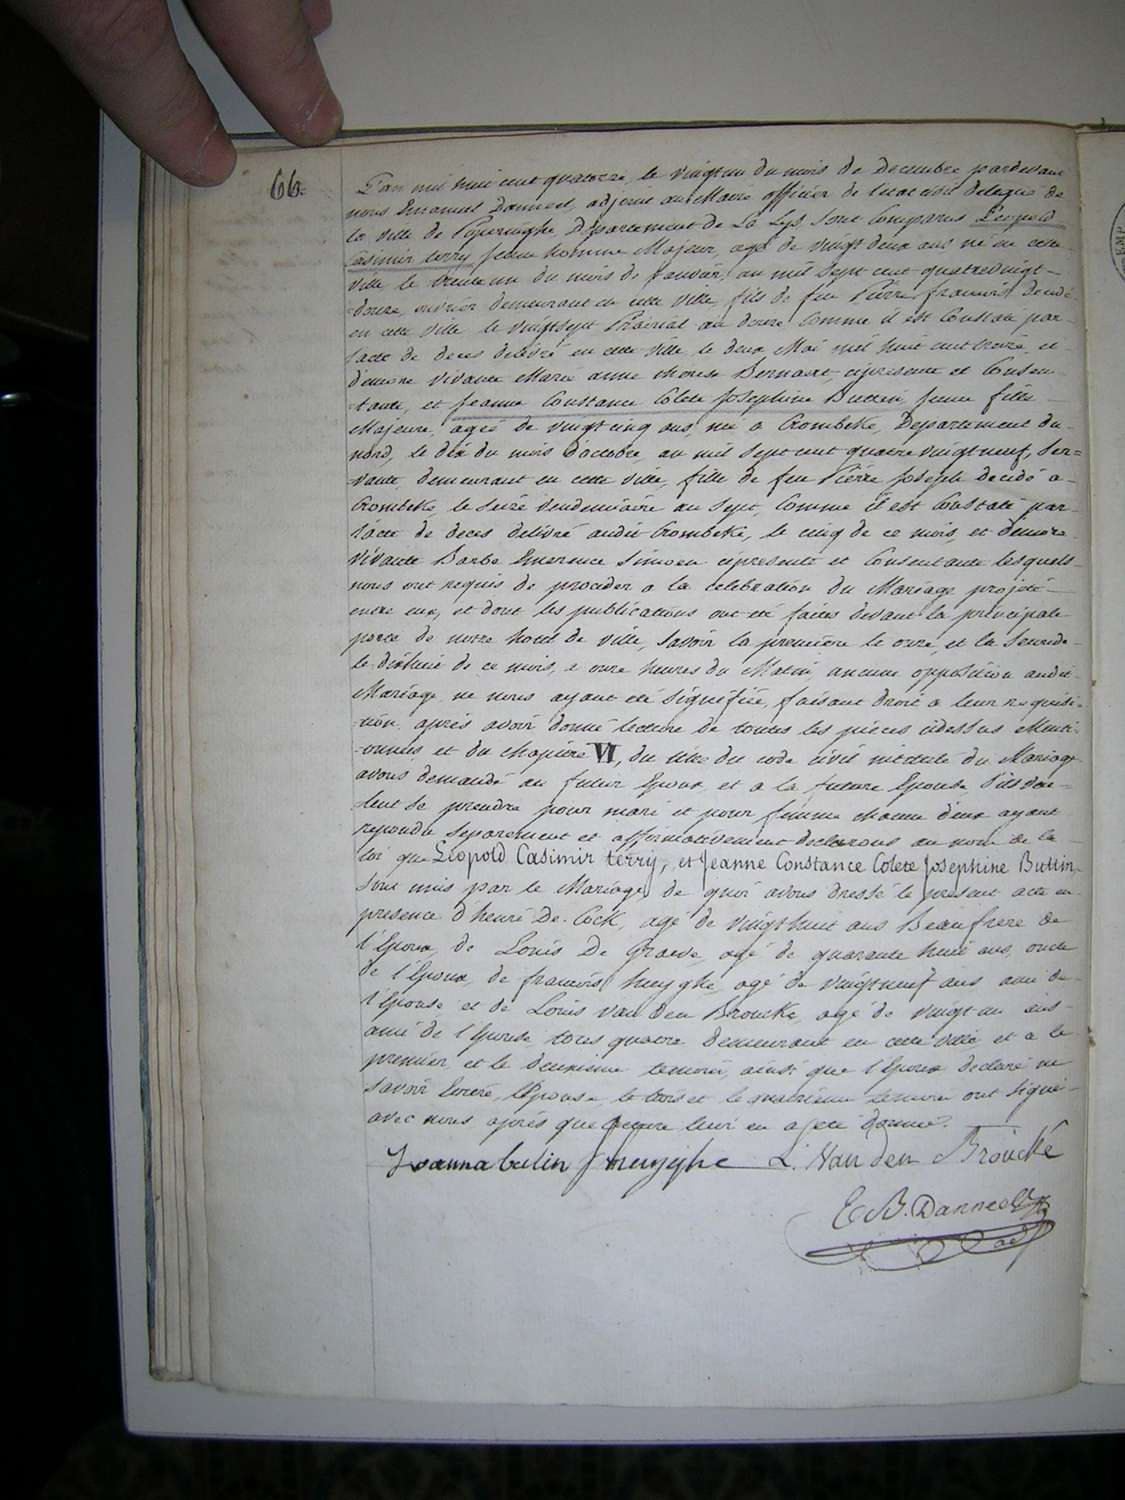 66.
L'an mil huit cent quatorze, le vingt un du mois de Decembre pardevant
nous Emanuel Danneel, adjoint au Maire officier de l'etat civil delegué de
la ville de Poperinghe Departement de La Lys, sont Comparus Leopold
Casimir terry jeune homme Majeur, agé de vingt deux ans, né en cette
ville le trente un du mois de janvier, an mil sept cent quatrevingt-
douze, ouvrier demeurant en cette ville, fils de feu Pierre francois decedé
en cette ville le vingtsept Prairial an douze Comme il est Constaté par
l'acte de deces delivré en cette ville le deux Mai mil huit cent treize, et
d'encore vivante Marie anne therese Bernaert, cipresente et Consen-
-tante, et Jeanne Constance Colete Josephine Butten, jeune fille
Majeure, agée de vingt cinq ans, née a Crombeke, Departement du
nord, le dix du mois d'octobre, an mil sept cent quatre vingt neuf, ser=
vante, demeurant en cette ville, fille de feu Pierre Joseph decedé a
Crombeke le seize vendemiaire an sept, Comme il est Constaté par
l'acte de deces delivré audit Crombeke, le cinq de ce mois, et d'encore
vivante Barbe Emerence Simoen cipresente et Consentante lesquels
nous ont requis de proceder a la celebration du Mariage projeté
entre eux, et dont les publications ont été faites devant la principale
porte de notre hotel de ville, savoir la premiere le onze, et la seconde
le dixhuit de ce mois, a onze heures du Matin, aucune opposition audit
Mariage ne nous ayant été signifiée, faisant droit a leur requisi-
tion, après avoir donné lecture de toutes les pièces cidessus Menti-
-onnées, et du chapitre VI, du titre du code civil intitulé du Mariage
avons demandé au futur Epoux et a la future Epouse s'ils veu-
lent se prendre pour mari et pour femme chacun d'eux ayant
repondu separement et affirmativement declarons au nom de la
loi que Leopold Casimir terry, et Jeanne Constance Colete Josephine Buttin,
sont unis par le Mariage, de quoi avons dressé le present acte en
presence d'henri De Cock, agé de vingt huit ans Beaufrere de
l'Epoux, de Louis De Graeve, agé de quarante huit ans, oncle
de l'Epoux, de francois hueyghe, agé de vingtneuf ans ami de
l'Epouse et de Louis Van den Broucke, agé de vingt un ans
ami de l'Epouse tous quatre demeurant en cette ville et a le
premier, et le deuxieme temoin, ainsi que l'Epoux declaré ne
savoir Ecrire, l'Epouse, le trois et le quatrieme temoin ont signé
avec nous après que lecture leur en a été donnée.
Joanna butin f hueyghe L. Van den Broucke
E B. Danneel